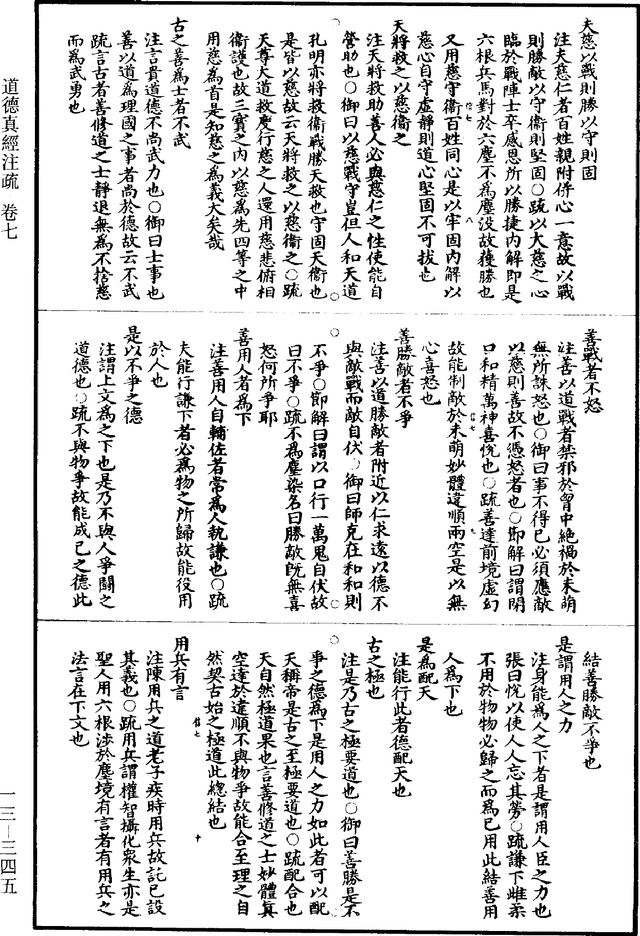 夫慈以戰則勝以守則固
注夫慈仁者百姓親附併心一意故以戰
則勝敵以守衛則堅固○疏以大慈之心
臨於戰陣士卒感恩所以勝捷內解即是
六根兵馬對於六塵不為塵沒故獲勝也
又用慈守衛百姓同心是以牢固內解以
慈心自守虛靜則道心堅固不可拔也
天將救之以慈衛之
注天將救助善人必與慈仁之性使能自
營助也○御曰以慈戰守豈但人和天道
孔明亦將救衛戰勝天救也守固天衛也
是皆以慈故云天將救之以慈衛之○疏
天尊大道救度行慈之人還用慈悲俯相
衛護也故三寶之內以慈為先四等之中
用慈為首是知慈之為義大矣哉
古之善為士者不武
注言貴道德不尚武力也○御曰士事也
善以道為理國之事者尚於德故云不武
疏言古者善修道之士靜退無為不捨慈
而為武勇也
善戰者不怒
注善以道戰者禁邪於胷中絕禍於未萌
無所誅怒也○御曰事不得已必須應敵
以慈則善故不憑怒者也○節解曰謂閉
口和精萬神喜悅也○疏善達前境虛幻
故能制敵於未萌妙體違順兩空是以無
心喜怒也
善勝敵者不爭
注善以道勝敵者附近以仁求遠以德不
與敵戰而敵自伏○御曰師克在和和則
不爭○節解曰謂以口行一萬鬼自伏故
曰不爭○疏不為塵染名曰勝敵既無喜
怒何所爭耶
善用人者為下
注善用人自輔佐者常為人執謙也○疏
夫能行謙下者必為物之所歸故能役用
於人也
是以不爭之德
注謂上文為之下也是乃不與人爭鬪之
道德也○疏不與物爭故能成己之德此
結善勝敵不爭也
是謂用人之力
注身能為人之下者是謂用人臣之力也
張曰悅以使人人忘其勞○疏謙下雌柔
不用於物物必歸之而為己用此結善用
人為下也
是為配天
注能行此者德配天也
古之極也
注是乃古之極要道也○御曰善勝是不
爭之德為下是用人之力如此者可以配
天稱帝是古之至極要道也○疏配合也
天自然極道果也言善修道之士妙體真
空達於違順不與物爭故能合至理之自
然契古始之極道此總結也
用兵有言
注陳用兵之道老子疾時用兵故託己設
其義也○疏用兵謂權智攝化眾生亦是
聖人用六根涉於塵境有言者有用兵之
法言在下文也
道德真經注疏 卷七
一三—三四五